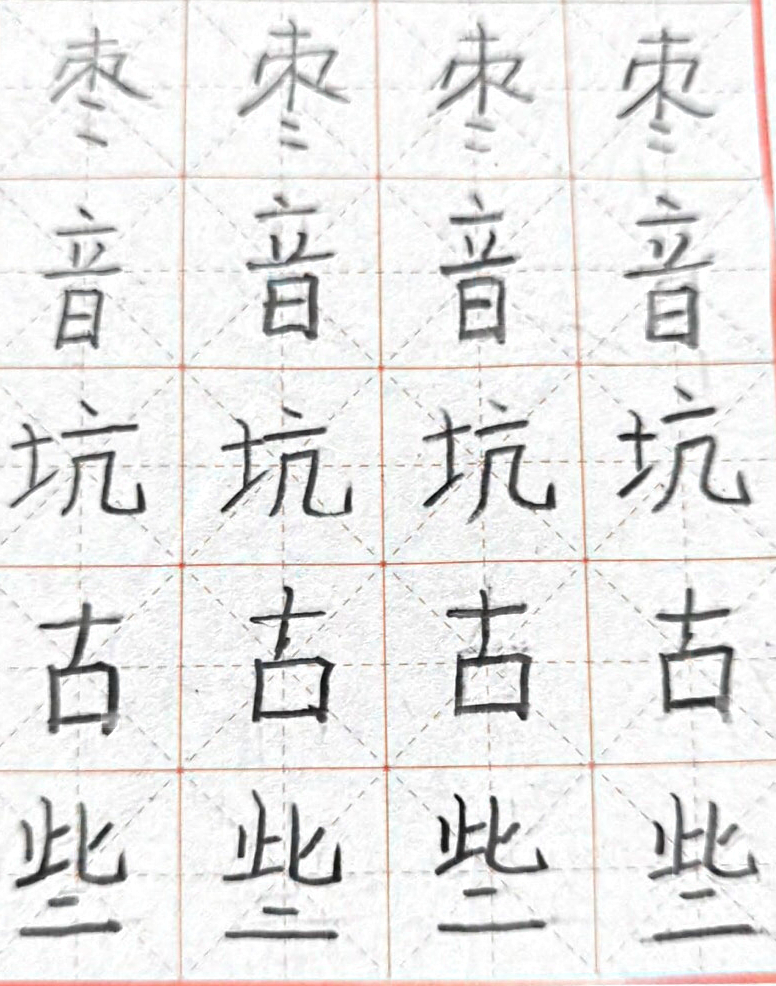 枣枣枣枣
音音音音
坑坑坑坑
古古古古
些些些些